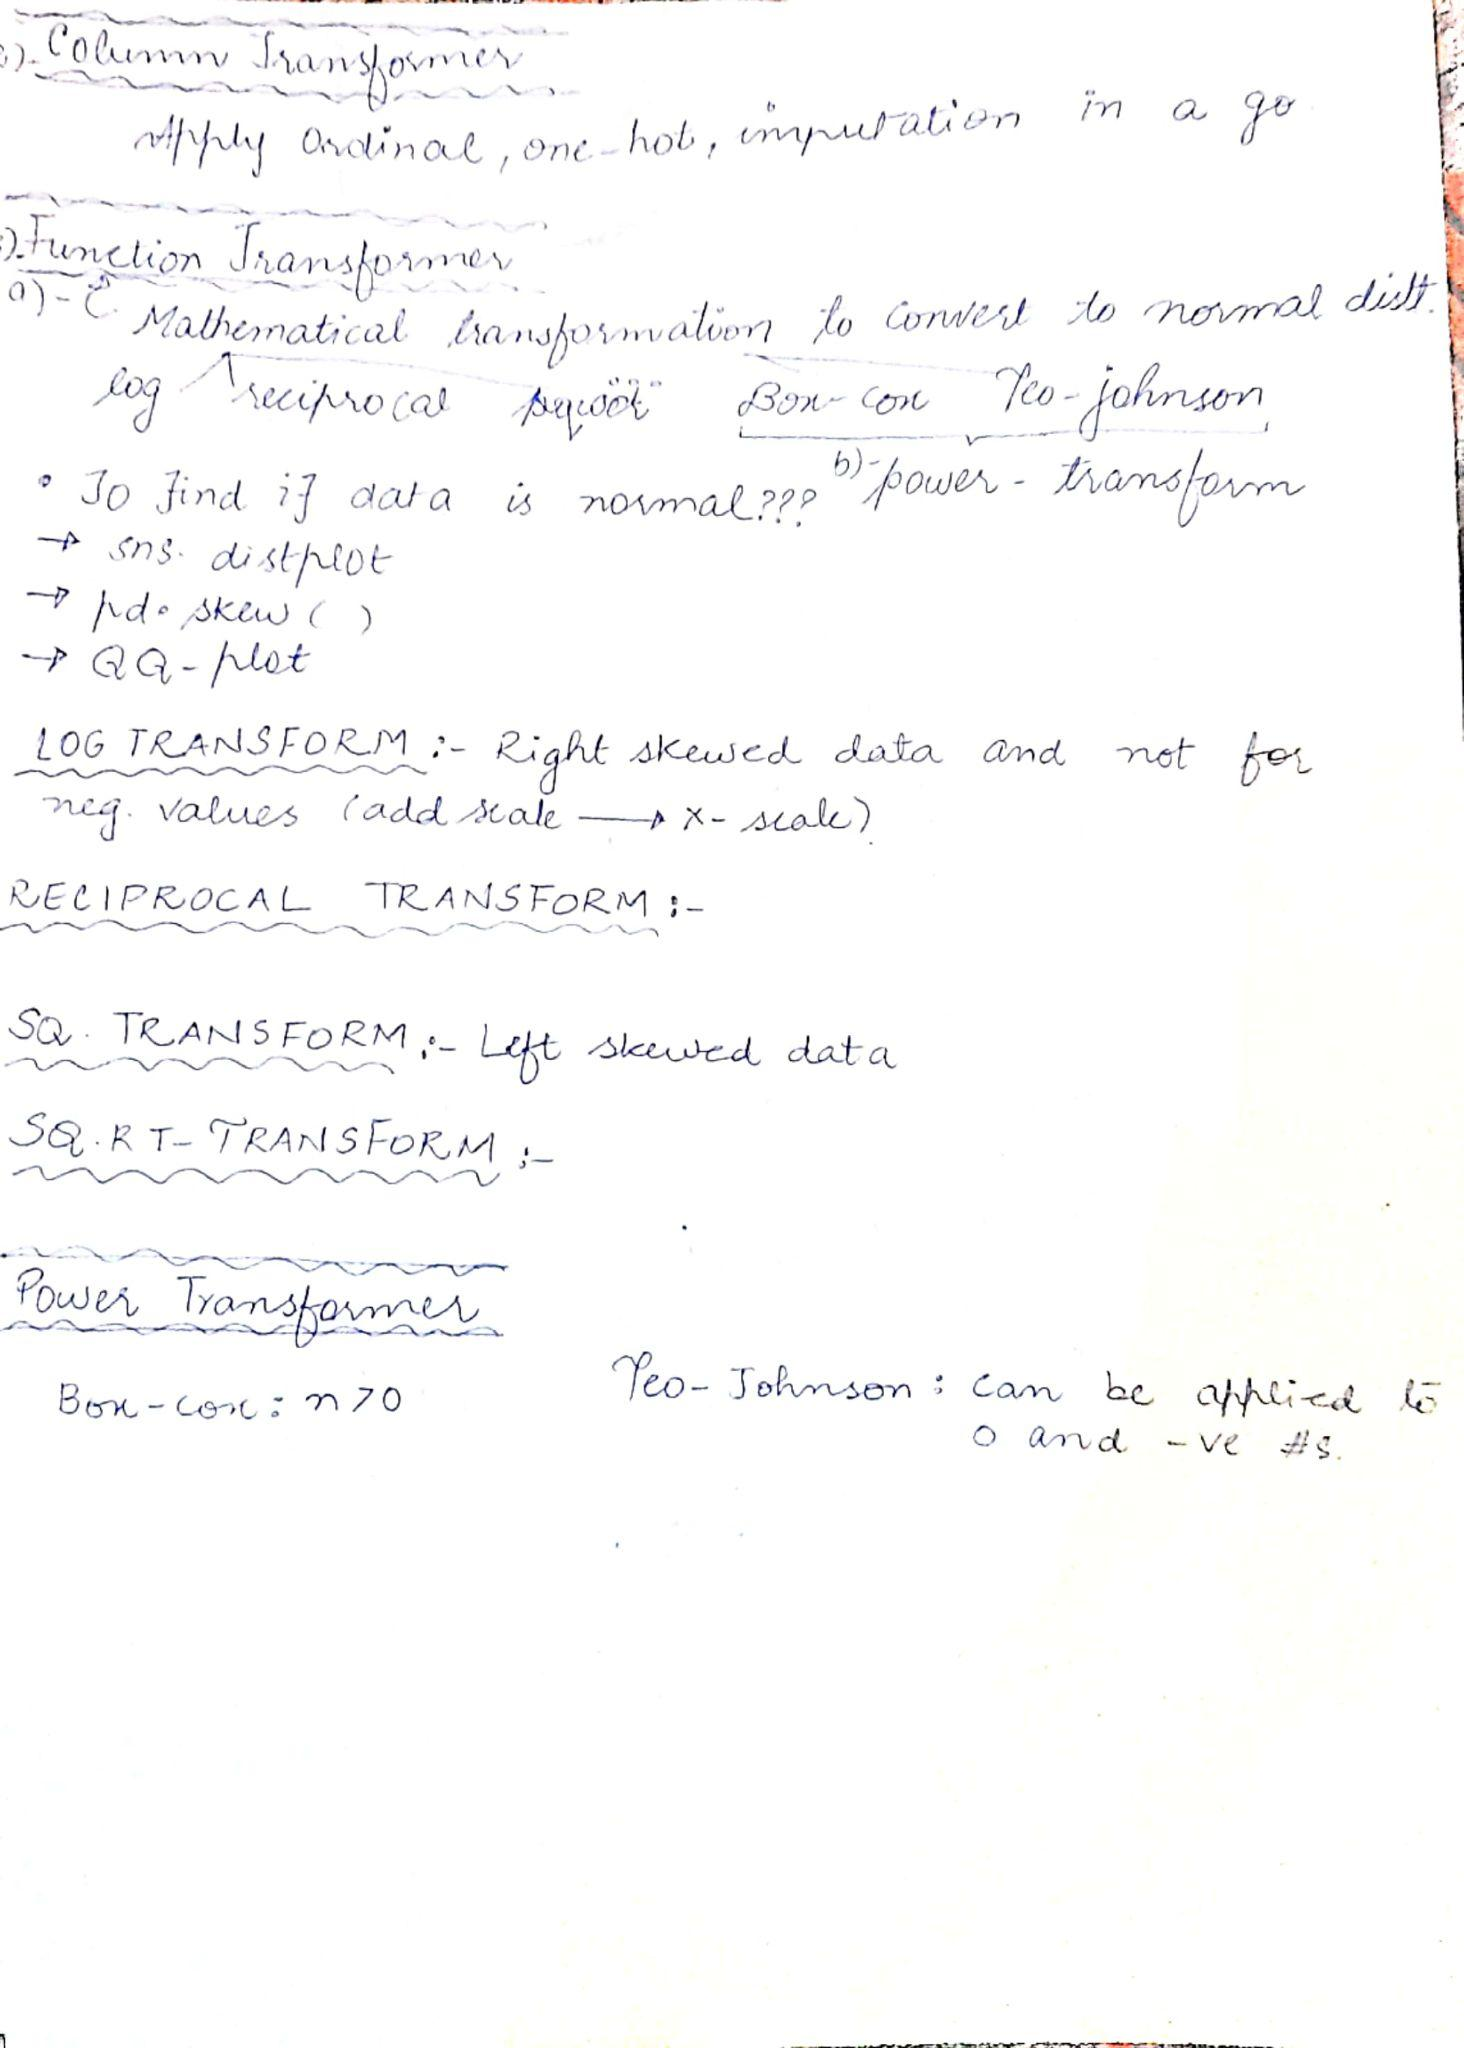 Column Transformer
Apply Ordinal, one-hot, imputation in a go
Function Transformer
a)- Mathematical transformation to convert to normal distt.
log reciprocal Box-cox Yeo-johnson
b)- power-transform
• To find if data is normal???
→ sns. distplot
→ pd. skew ( )
→ QQ-plot
LOG TRANSFORM :- Right skewed data and not for
neg. values (add scale → x-scale)
RECIPROCAL TRANSFORM :-
SQ. TRANSFORM :- Left skewed data
SQ.RT- TRANSFORM :-
Power Transformer
Box-cox : x>0
Yeo-Johnson : can be applied to
0 and -ve #s.